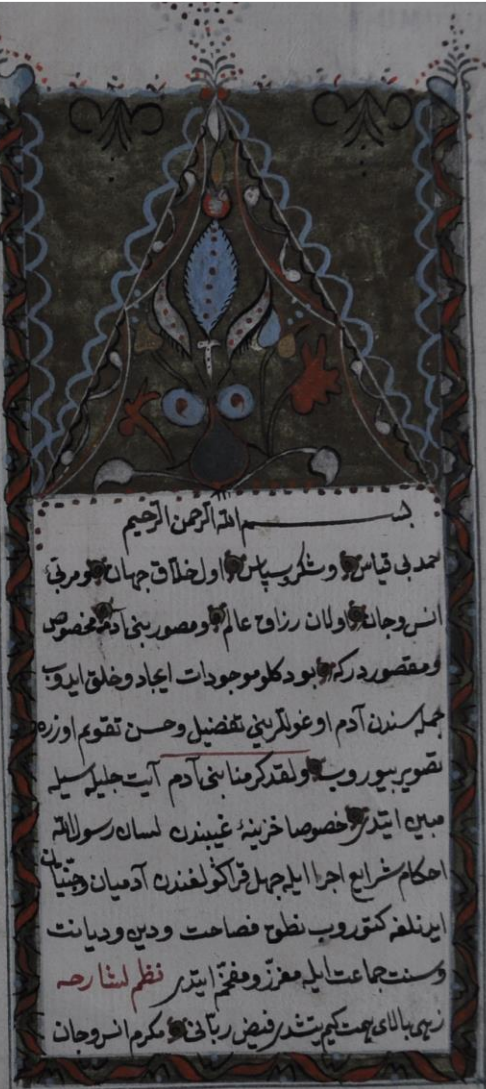 بسم الله الرحمن الرحيم
حمد بی قیاس و شکر و سپاس اول خلاق جهان و مربئ
انس و جان اولان رزاق عالم و مصور بنی آدم مخصوص
و مقصور در که بو دكلو موجودات ایجاد و خلق ایدوب
جمله سندن آدم اوغوللرینی تفضیل و حسن تقویم اوزره
تصویر بیوروب ولقد کرمنا بنی آدم آیت جلیله سیله
مبین ایتدی خصوصا خزینۀ غیبندن لسان رسول الله
احکام شرایع اجرا ایله جهل قراکولغندن آدمیان و جنیان
ایدنلغه کتوروب نطق فصاحت و دین و دیانت
و سنت جماعت ایله معزز و مفخم ایتدی نظم لشارحه
زهی بالای همت کیم یتشدی فیض ربانی مکرم انس و جان